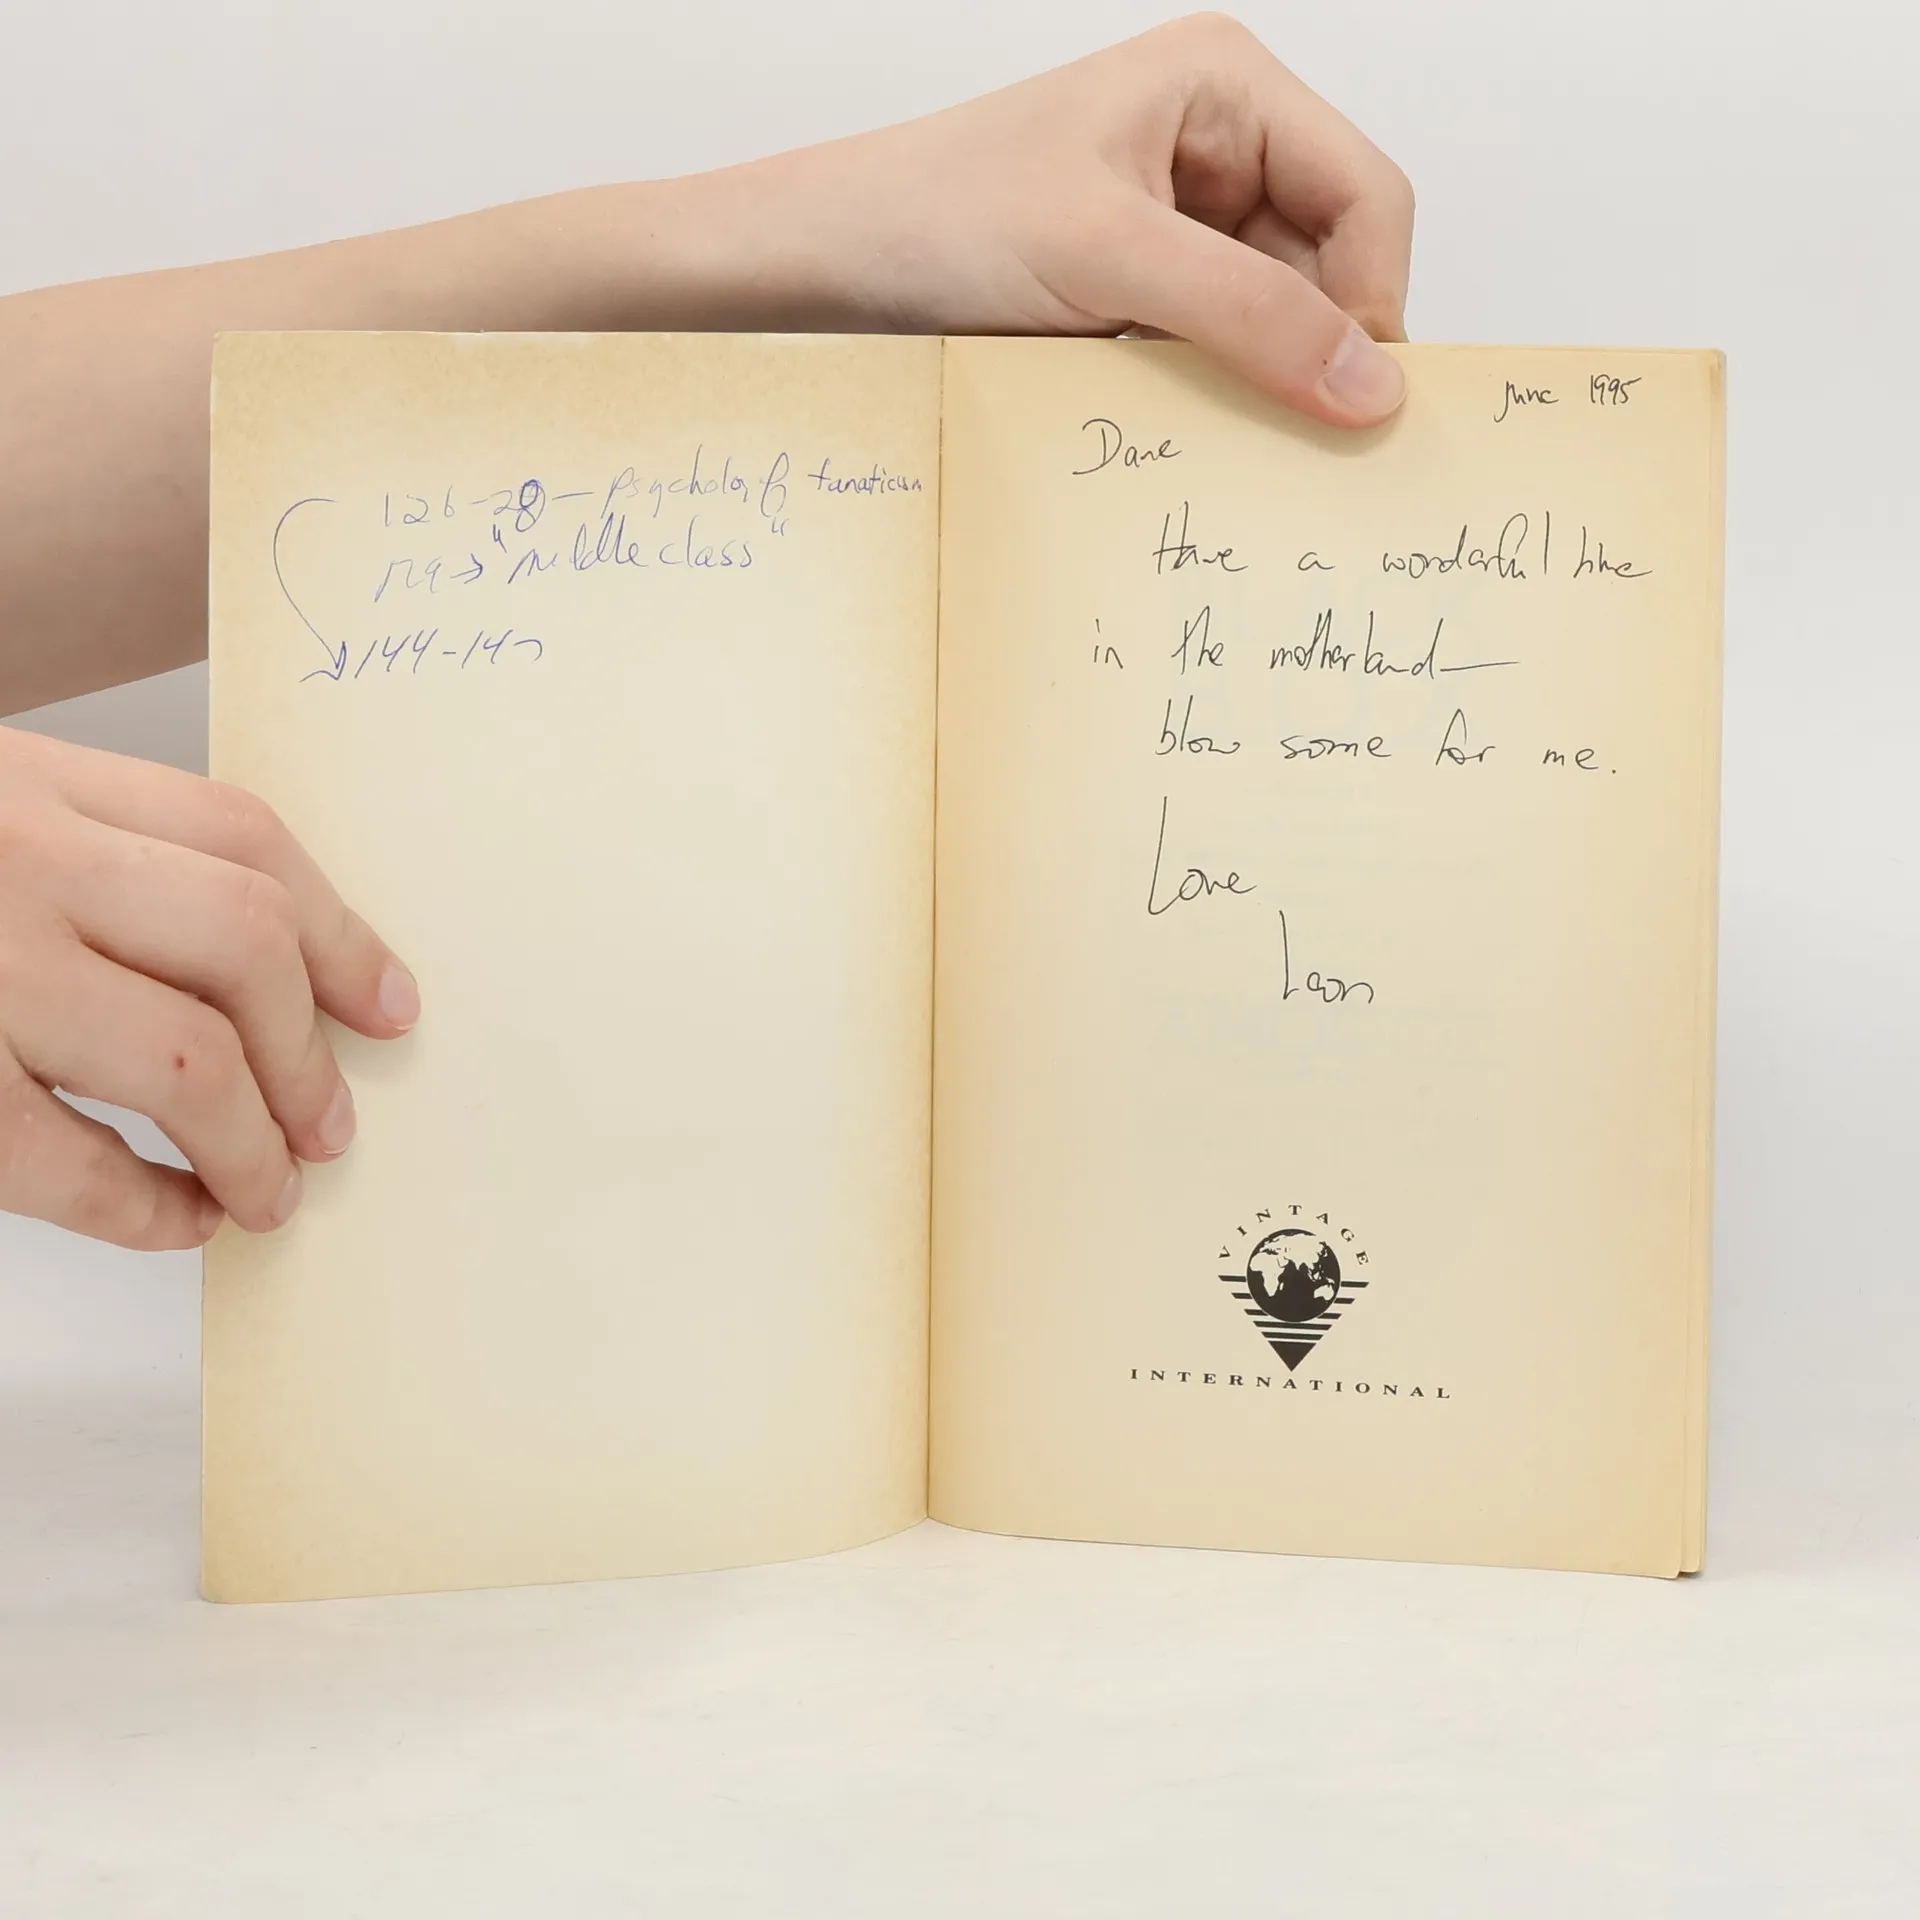 126-28 — psychology of fanaticism
129 → "middle class"
144-147
June 1995
Dave
Have a wonderful time
in the motherland —
blow some for me.
Love
Leon
VINTAGE
INTERNATIONAL